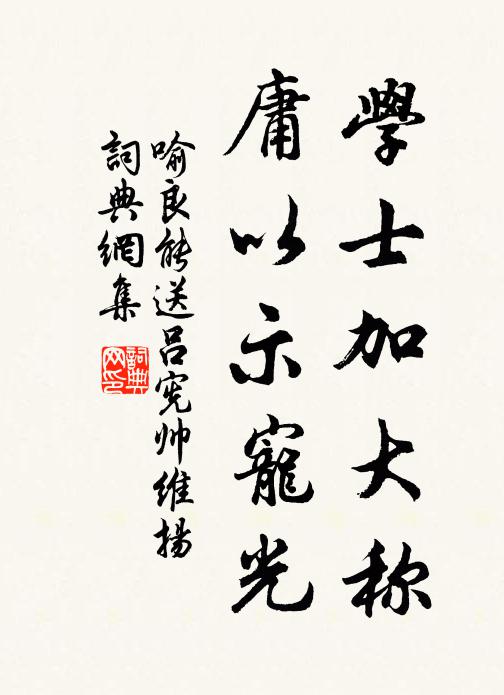 學士加大称
庸以示寵光
喻良能送呂宪帅維揚
詞典網集
詞典网印